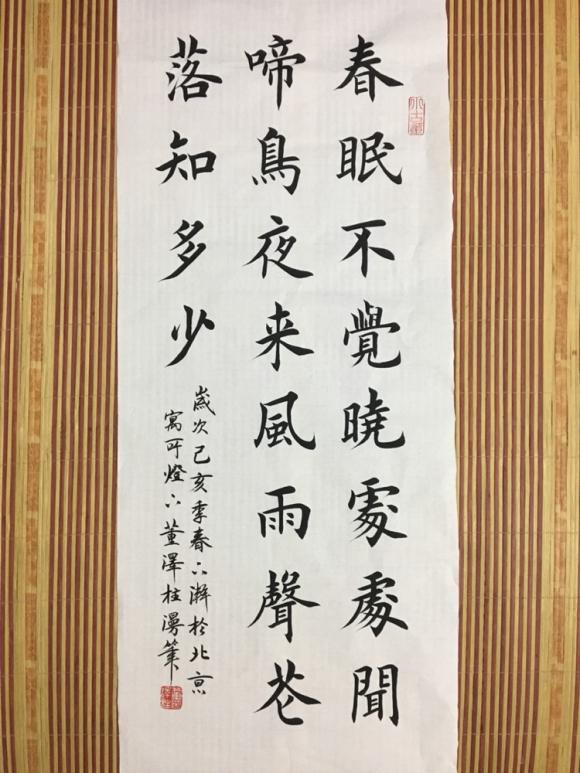 春眠不覺曉處處聞
啼鳥夜来風雨聲花
落知多少
歲次己亥季春下澣於北京
寓所燈下董澤柱漫筆